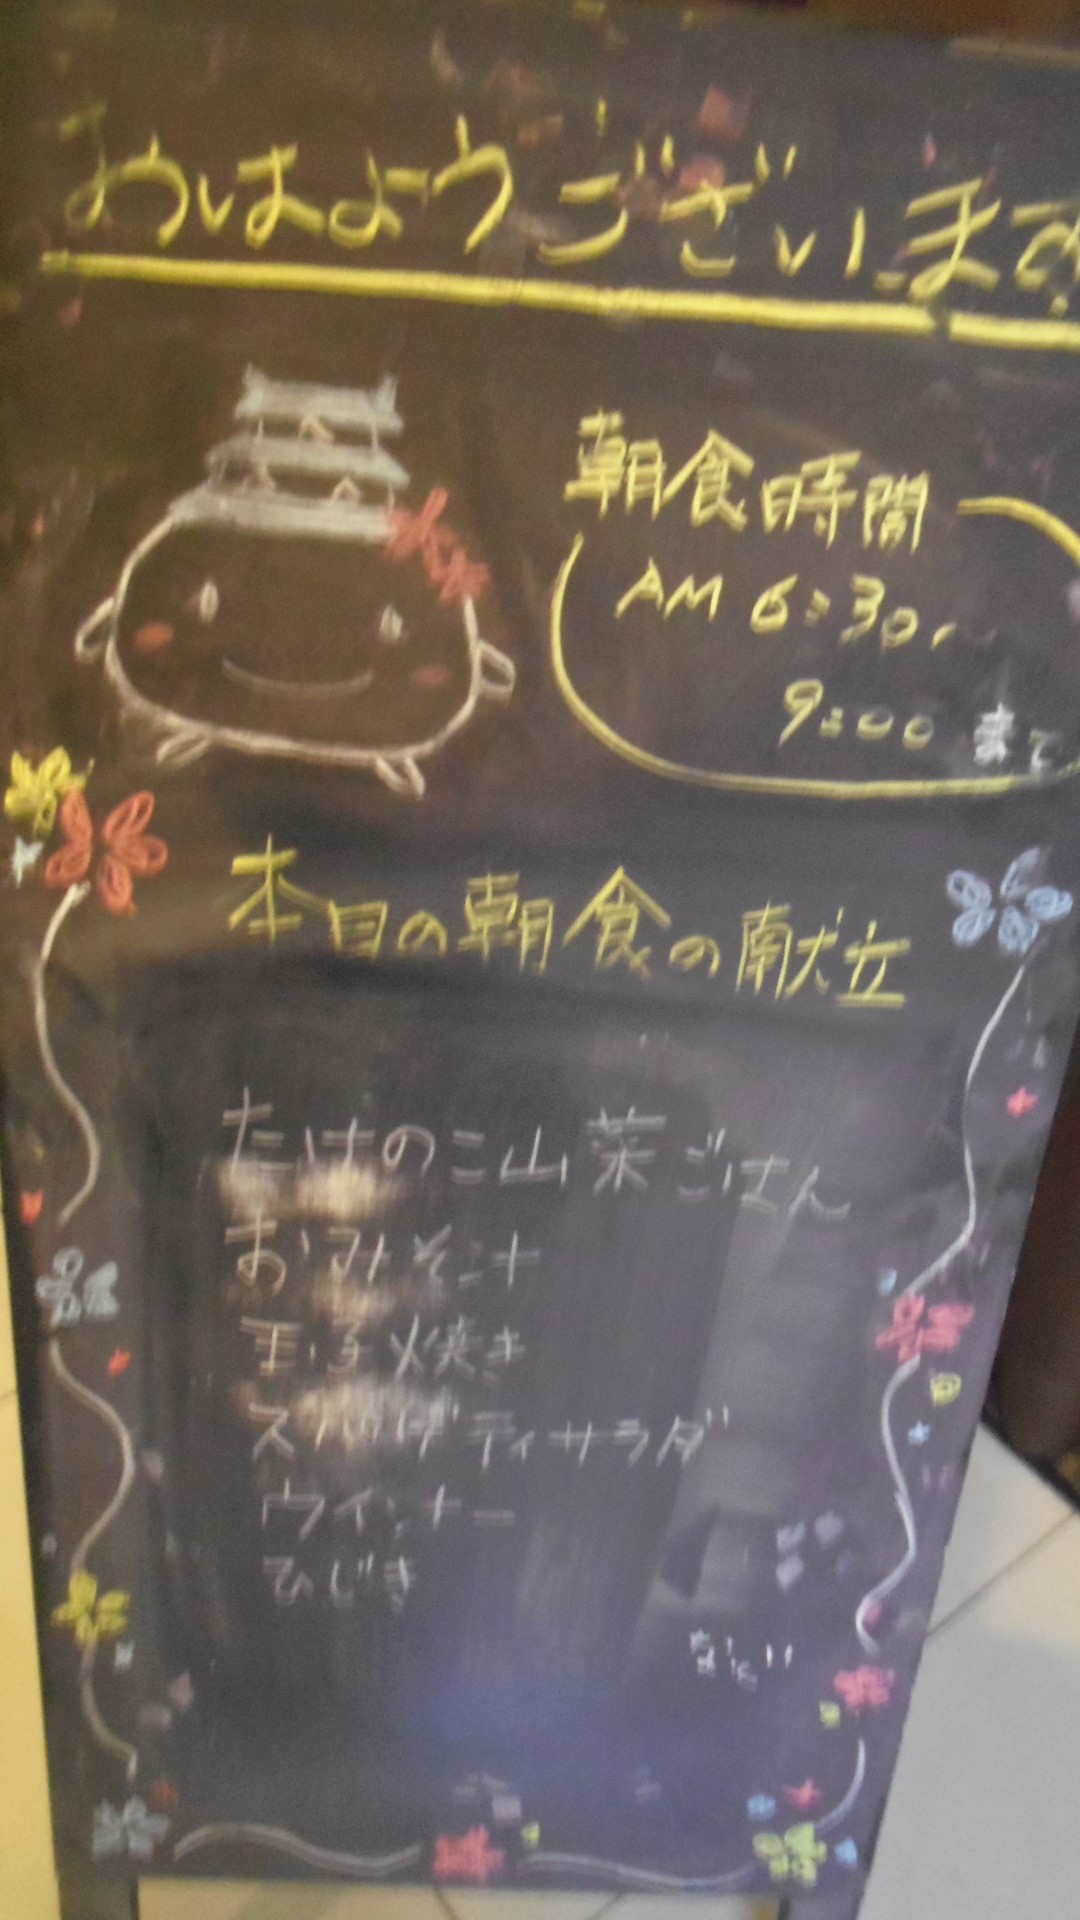 おはようございます
朝食時間
AM 6:30~
9:00 まで
本日の朝食の献立
たけのこ山菜ごはん
おみそ汁
玉子焼き
スパゲティサラダ
ウインナー
ひじき
など!!